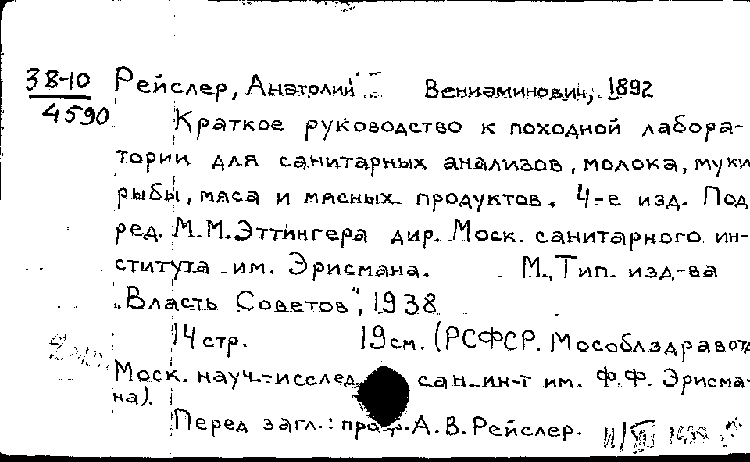 38-10
4590
Рейслер, Анатолий Вениаминович, 1892
Краткое руководство к походной лабора-
тории для санитарных анализов, молока, муки
рыбы, мяса и мясных продуктов. 4-е изд. Под
ред. М.М.Эттингера дир. Моск. санитарного ин-
ститута им. Эрисмана. М., Тип. изд-ва
"Власть Советов", 1938
14 стр. 19 см. (РСФСР. Мособлздравотд
Моск. науч.-исслед сан. ин-т им. Ф.Ф. Эрисма-
на).
Перед загл.: проф. А.В.Рейслер.